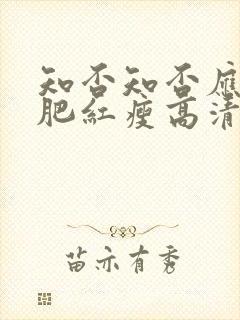 知否知否應
肥紅瘦高清
苗亦有秀